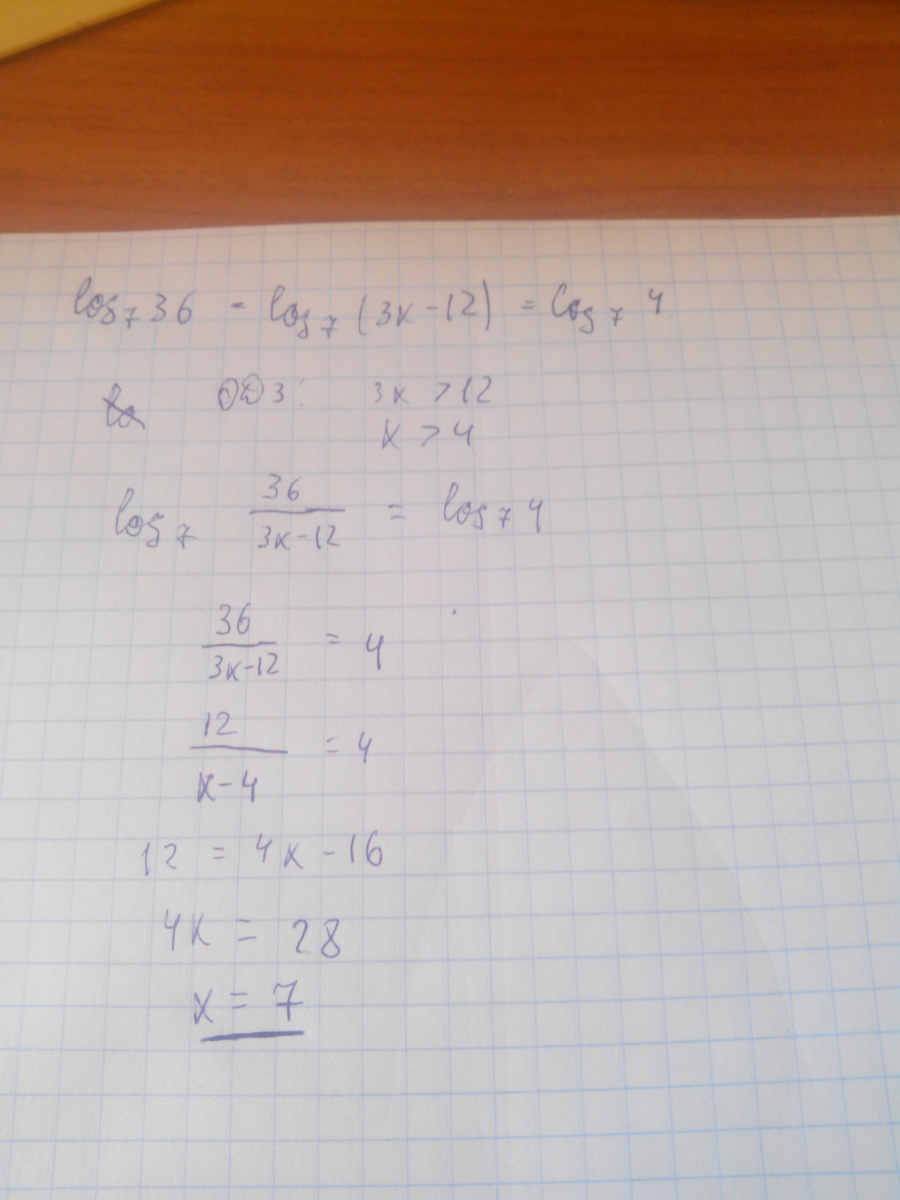 log₇36 - log₇(3x-12) = log₇4
ОДЗ: 3x > 12
x > 4
log₇ 36/(3x-12) = log₇4
36/(3x-12) = 4
12/(x-4) = 4
12 = 4x - 16
4x = 28
x = 7